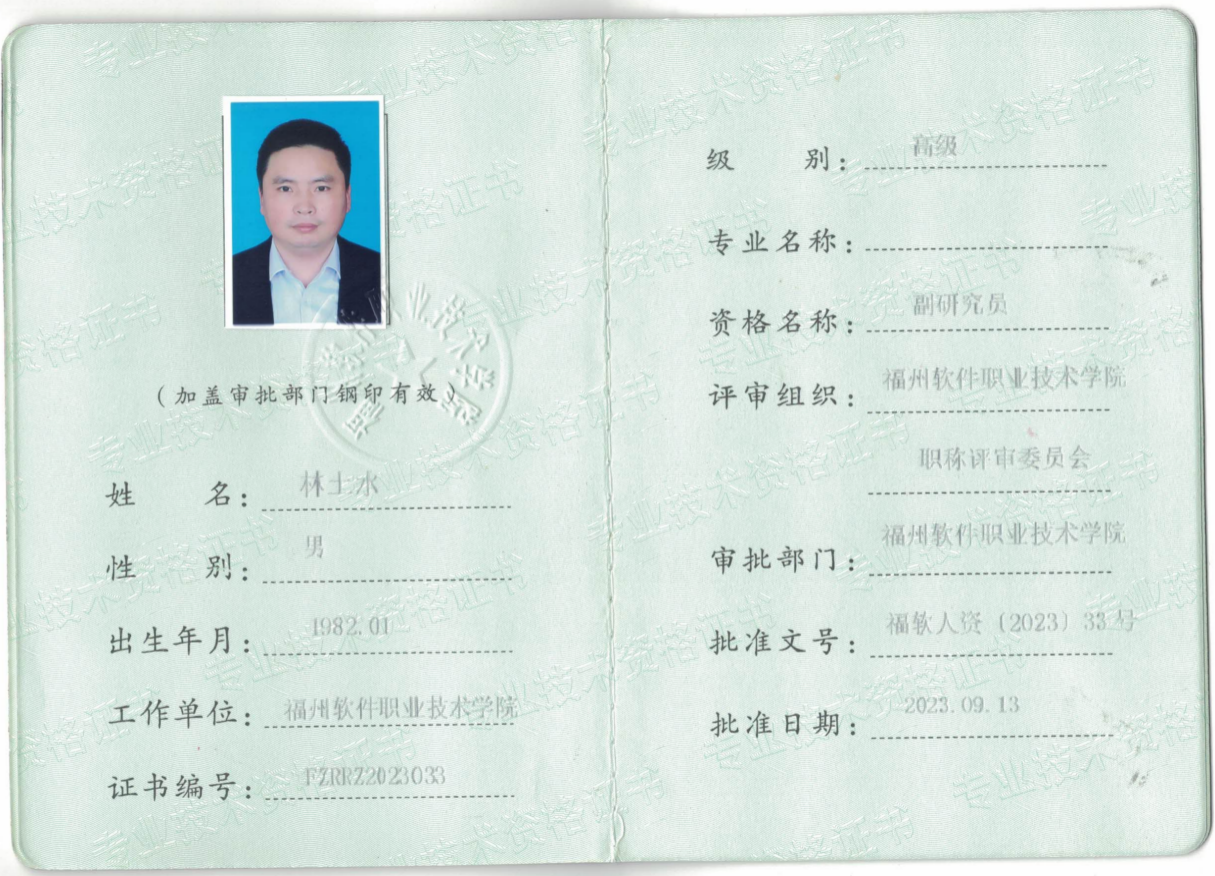 (加盖审批部门钢印有效)
姓 名: 林土水
性 别: 男
出生年月: 1982.01
工作单位: 福州软件职业技术学院
证书编号: FZRRZ2023033
级 别: 高级
专业名称:
资格名称: 副研究员
评审组织: 福州软件职业技术学院
职称评审委员会
审批部门: 福州软件职业技术学院
批准文号: 福软人资〔2023〕33号
批准日期: 2023.09.13
专业技术资格证书